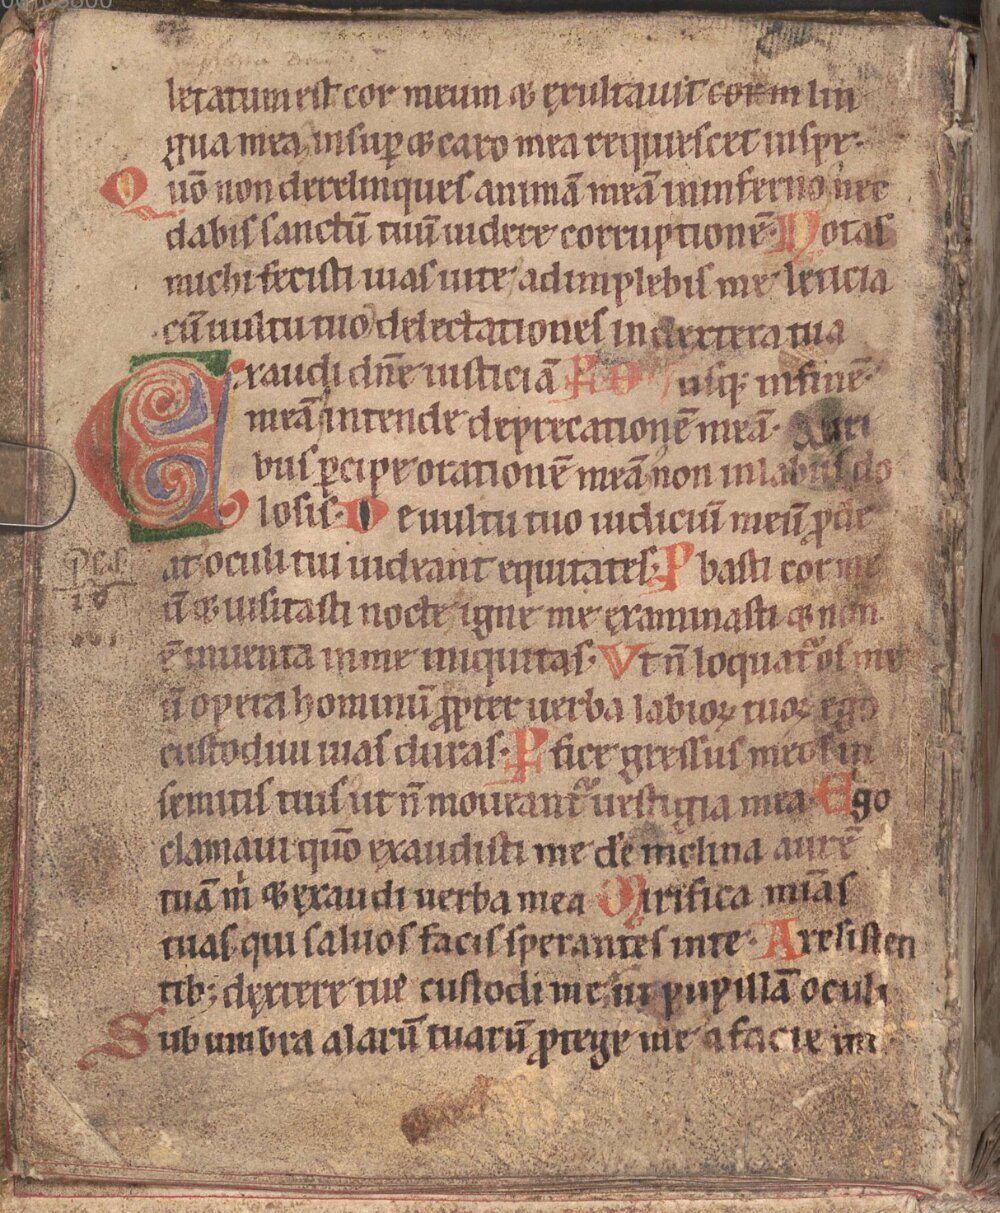 letatum est cor meum & exultauit cor m lin
gua mea, insup̱ & caro mea requiescet inspe.
Quō non derelinques animā meā ininferno, nec
dabis sanctū tuū uidere corruptionē. Notas
michi fecisti uias uite, adimplebis me leticia
cū uultu tuo, delectationes in dextera tua
Exaudi dn̄e iusticiā usq; infinē.
meā, intende deprecationē meā. Auri
bus p̱cipe orationē meā, non inlabiis do
losis. De uultu tuo iudiciū meū ꝓde
at, oculi tui uideant equitates. Pbasti cor me
ū & uisitasti nocte, igne me examinasti & non
ē inuenta inme iniquitas. Vt n̄ loquat᷑ os me
ū opera hominū, ꝓpter uerba labioꝝ tuoꝝ ego
custodiui uias duras. Pfice gressus meos in
semitis tuis, ut n̄ moueant᷑ uestigia mea. Ego
clamaui quō exaudisti me dē, inclina aurē
tuā m̄ & exaudi uerba mea Mirifica mīas
tuas, qui saluos facis sperantes inte. Aresisten
tib; dextere tue custodi me, ut pupillā oculi
Sub umbra alarū tuarū ꝓtege me, a facie im